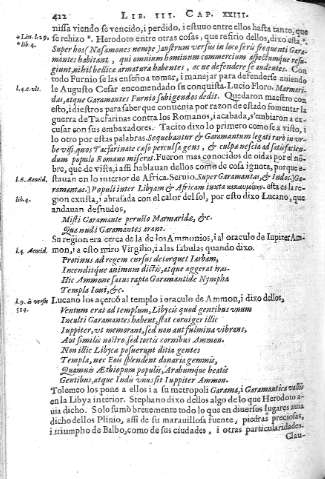 422 LIB. III. CAP. XXIII.
nissa viendo se vencido, i perdido, i estuvo entre ellos hasta tanto, que
se rehizo *. Herodoto entre otras cosas, que refirio dellos, dixo esta *.
Super hos (Nasamones nempe) austrum versus in loco feris frequenti Gara-
mantes habitant, qui omnium hominum commercium aspectumque refu-
giunt, nihil bellicæ armaturæ habentes, nec defendere se audentes. Con
todo Furnio se las enseño a tomar, i manejar para defenderse aviendo
le Augusto Cesar encomendado su conquista. Lucio Floro. Marmari-
das, atque Garamantes Furnio subigendos dedit. Quedaron maestros con
esto, i diestros para saber que contienda por razon de estado fomentar la
guerra de Tacfarinas contra los Romanos, i acabada, s'embiaron a ex-
cusar con sus embaxadores. Tacito dixo lo primero como se a visto, i
lo otro por estas palabras. Sequebantur & Garamantum legati raro in ur-
be visi, quos Tacfarinate cæso perculsa gens, & culpæ nescia ad satisfacien-
dum populo Romano miserat. Fueron mas conocidos de oidas por el nõ-
bre, que de vista, i assi hablauan dellos como de cosa ignota, porque e-
stauan en lo interior de Africa. Servio. Super Garamantas, & Indos (Ga-
ramantas) Populi inter Libyam & Africam iuxta esta es la re-
gion exusta, i abrasada con el calor del sol, por esto dixo Lucano, que
andauan desnudos,
Misti Garamante perusto Marmaridæ, &c.
Quâ nudi Garamantes arant.
Su region era cerca de la de los Ammonios, i al oraculo de Iupiter Am-
mon, i a esto miro Virgilio, i a las fabulas quando dixo.
Protinus ad regem cursus detorquet Iarbam,
Incenditque animum dictis, atque aggerat iras.
Hic Ammone satus rapta Garamantide Nympha
Templa Ioui, &c.
Lucano los acercó al templo i oraculo de Ammon, i dixo dellos,
Ventum erat ad templum, Libycis quod gentibus vnum
Inculti Garamantes habent, stat corniger illic
Iuppiter, vt memorant, sed non aut fulmina vibrans,
Aut similis nostro, sed tortis cornibus Ammon.
Non illic Libycæ posuerunt ditia gentes
Templa, nec Eois splendent donaria gemmis,
Quamuis Æthiopum populis, Arabumque beatis
Gentibus, atque Indis vnus sit Iuppiter Ammon.
Tolemeo los pone a ellos i a su metropoli Garamá, i Garamantica vallis
en la Libya interior. Stephano dixo dellos algo de lo que Herodoto a-
uia dicho. Solo sumò breuemente todo lo que en diversos lugares auia
dicho dellos Plinio, assi de su marauillosa fuente, piedras preciosas,
i triumpho de Balbo, como de sus ciudades, i otras particularidades.
Clau-
lib. 4.
L. 4. c. vlt.
L. 6. Aeneid.
lib. 4.
L. 4. Aeneid.
L. 9. à versu